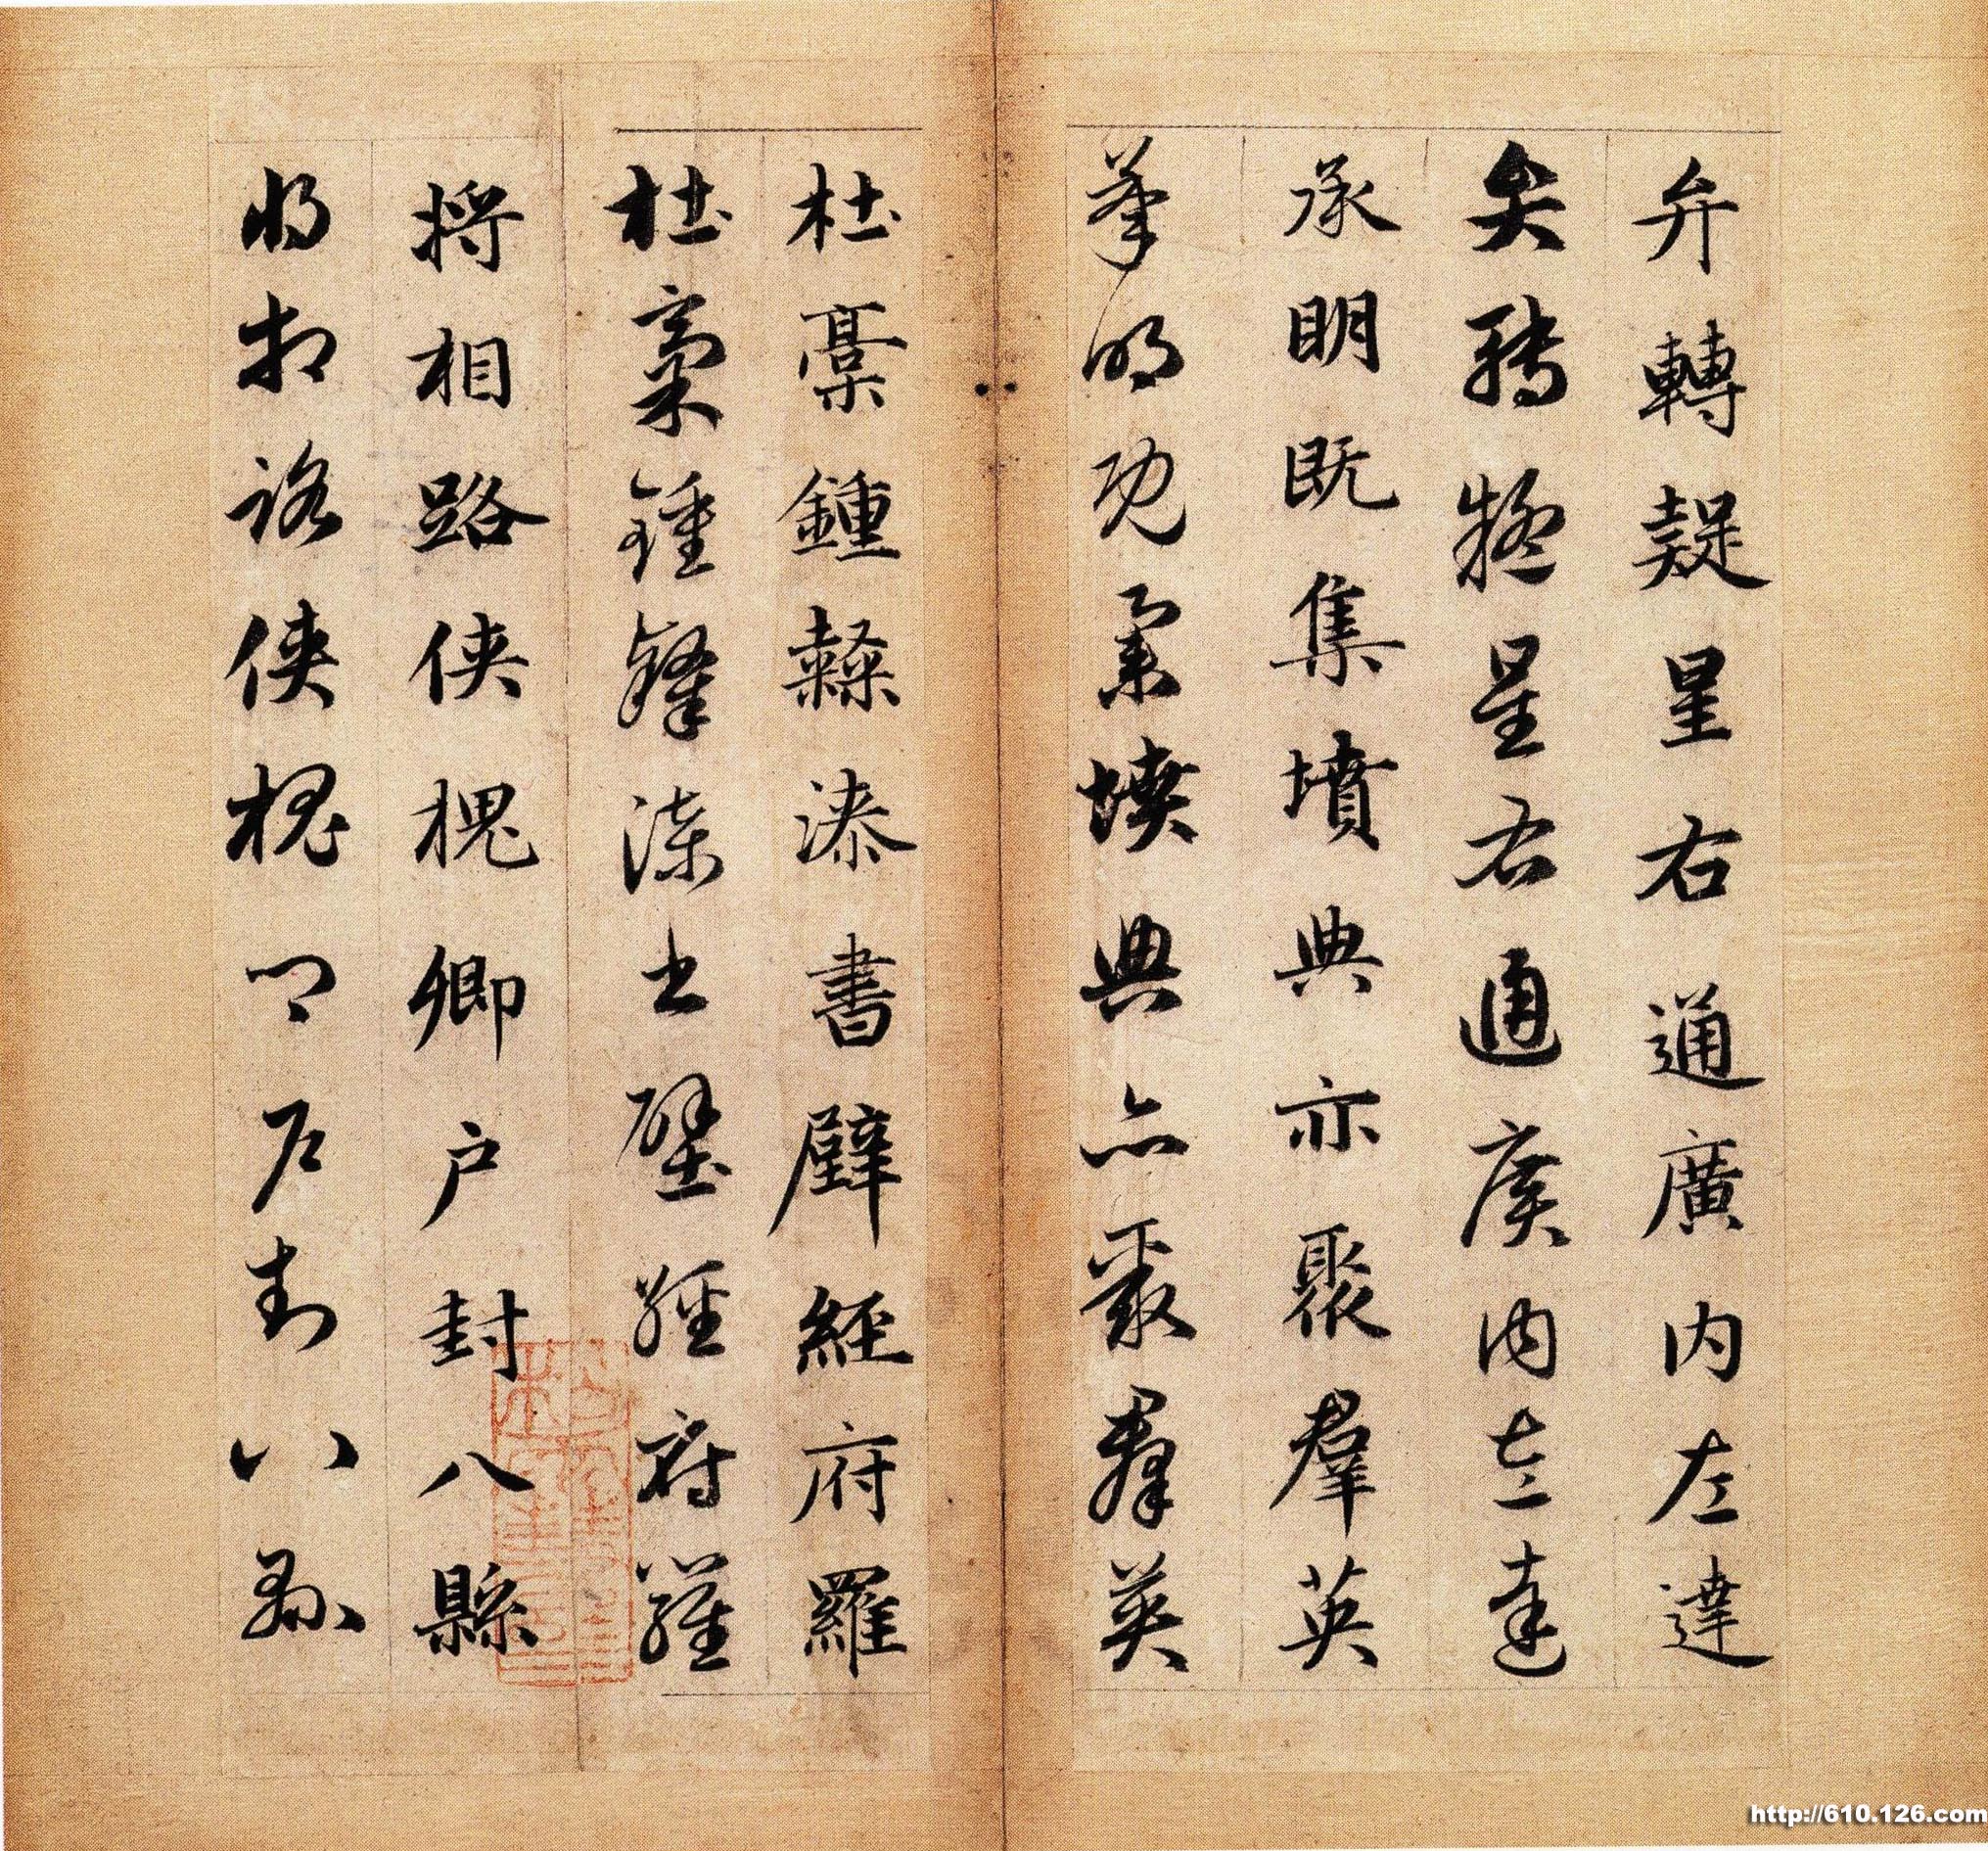 弁轉疑星右通廣内左達
弁轉疑星右通廣内左達
承明既集墳典亦聚羣英
承明既集墳典亦聚羣英
杜稾鍾隸漆書壁經府羅
杜稾鍾隸漆書壁經府羅
將相路俠槐卿户封八縣
將相路俠槐卿户封八縣
http://610.126.com